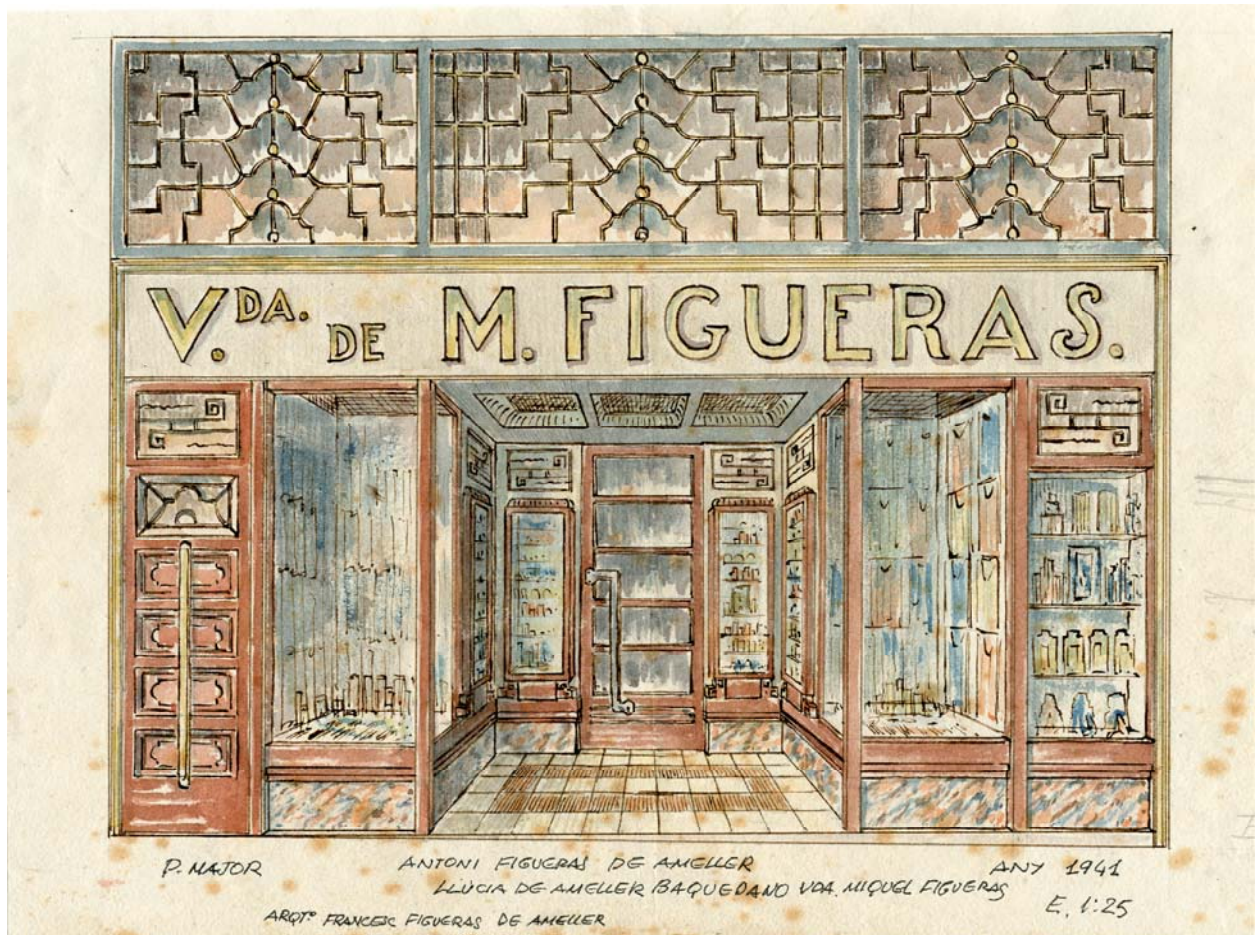 V.DA. DE M. FIGUERAS.
P. MAJOR ANTONI FIGUERAS DE AMELLER ANY 1941
LLÚCIA DE AMELLER BAQUEDANO VDA. MIQUEL FIGUERAS
E. 1:25
ARQTº FRANCESC FIGUERAS DE AMELLER